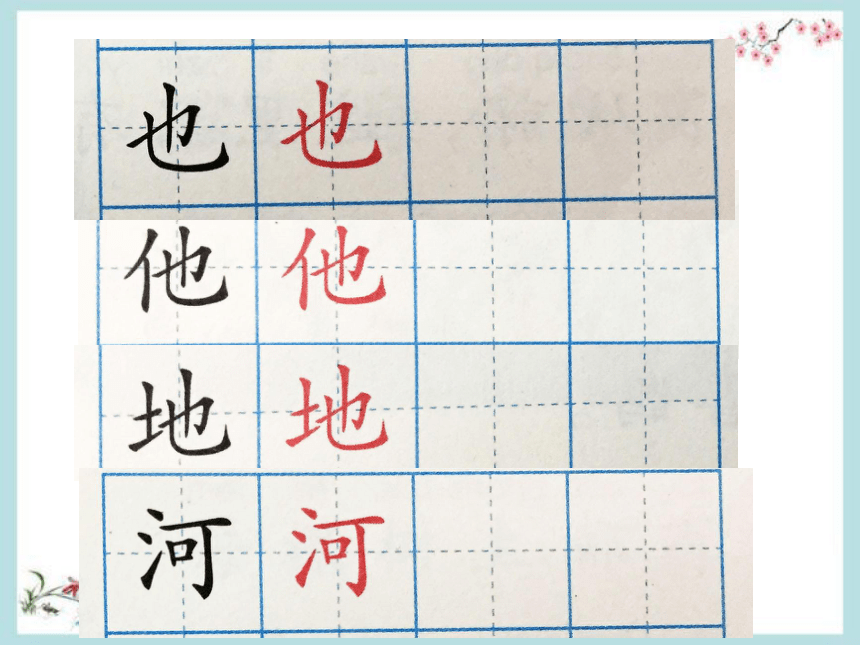 也 也
他 他
地 地
河 河